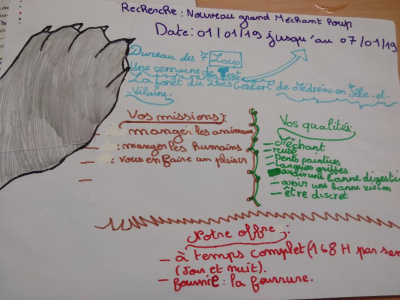 Recherche : Nouveau grand Méchant Loup
Date: 01/01/19 jusqu'au 07/01/19
Bureau des 7 Loups
une semaine de test
La forêt du Bois Gobert de Médréac en Ille-et-
Vilaine.
Vos missions :
manger les animaux
manger les humains
vous en faire un plaisir
Vos qualités
- Méchant
- rusé
- Dents pointues
- Longues griffes
avoir une bonne digestion
- avoir une bonne vision
- être discret
Notre offre :
- à temps complet (168 H par sem
(Jour et nuit).
- fournit : la fourrure.